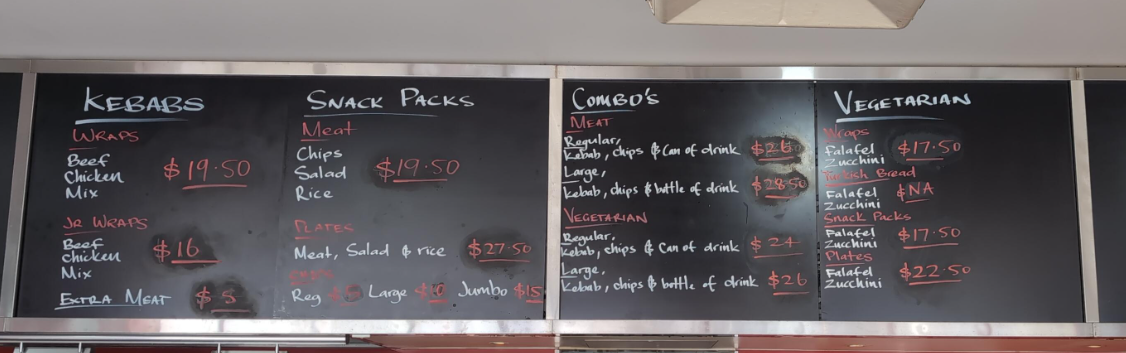 KEBABS
WRAPS
Beef
Chicken
Mix
$19.50
JR WRAPS
Beef
chicken
Mix
$16
EXTRA MEAT $5
SNACK PACKS
Meat
Chips
Salad
Rice
$19.50
PLATES
Meat, Salad & rice $27.50
Reg Large Jumbo $15
COMBO'S
MEAT
Regular,
Kebab, chips & Can of drink $26
Large,
Kebab, chips & bottle of drink $28.50
VEGETARIAN
Regular,
Kebab, chips & Can of drink $24
Large,
Kebab, chips & bottle of drink $26
VEGETARIAN
Wraps
Falafel
Zucchini
$17.50
Turkish Bread
Falafel
Zucchini
$NA
Snack Packs
Falafel
Zucchini
$17.50
Plates
Falafel
Zucchini
$22.50